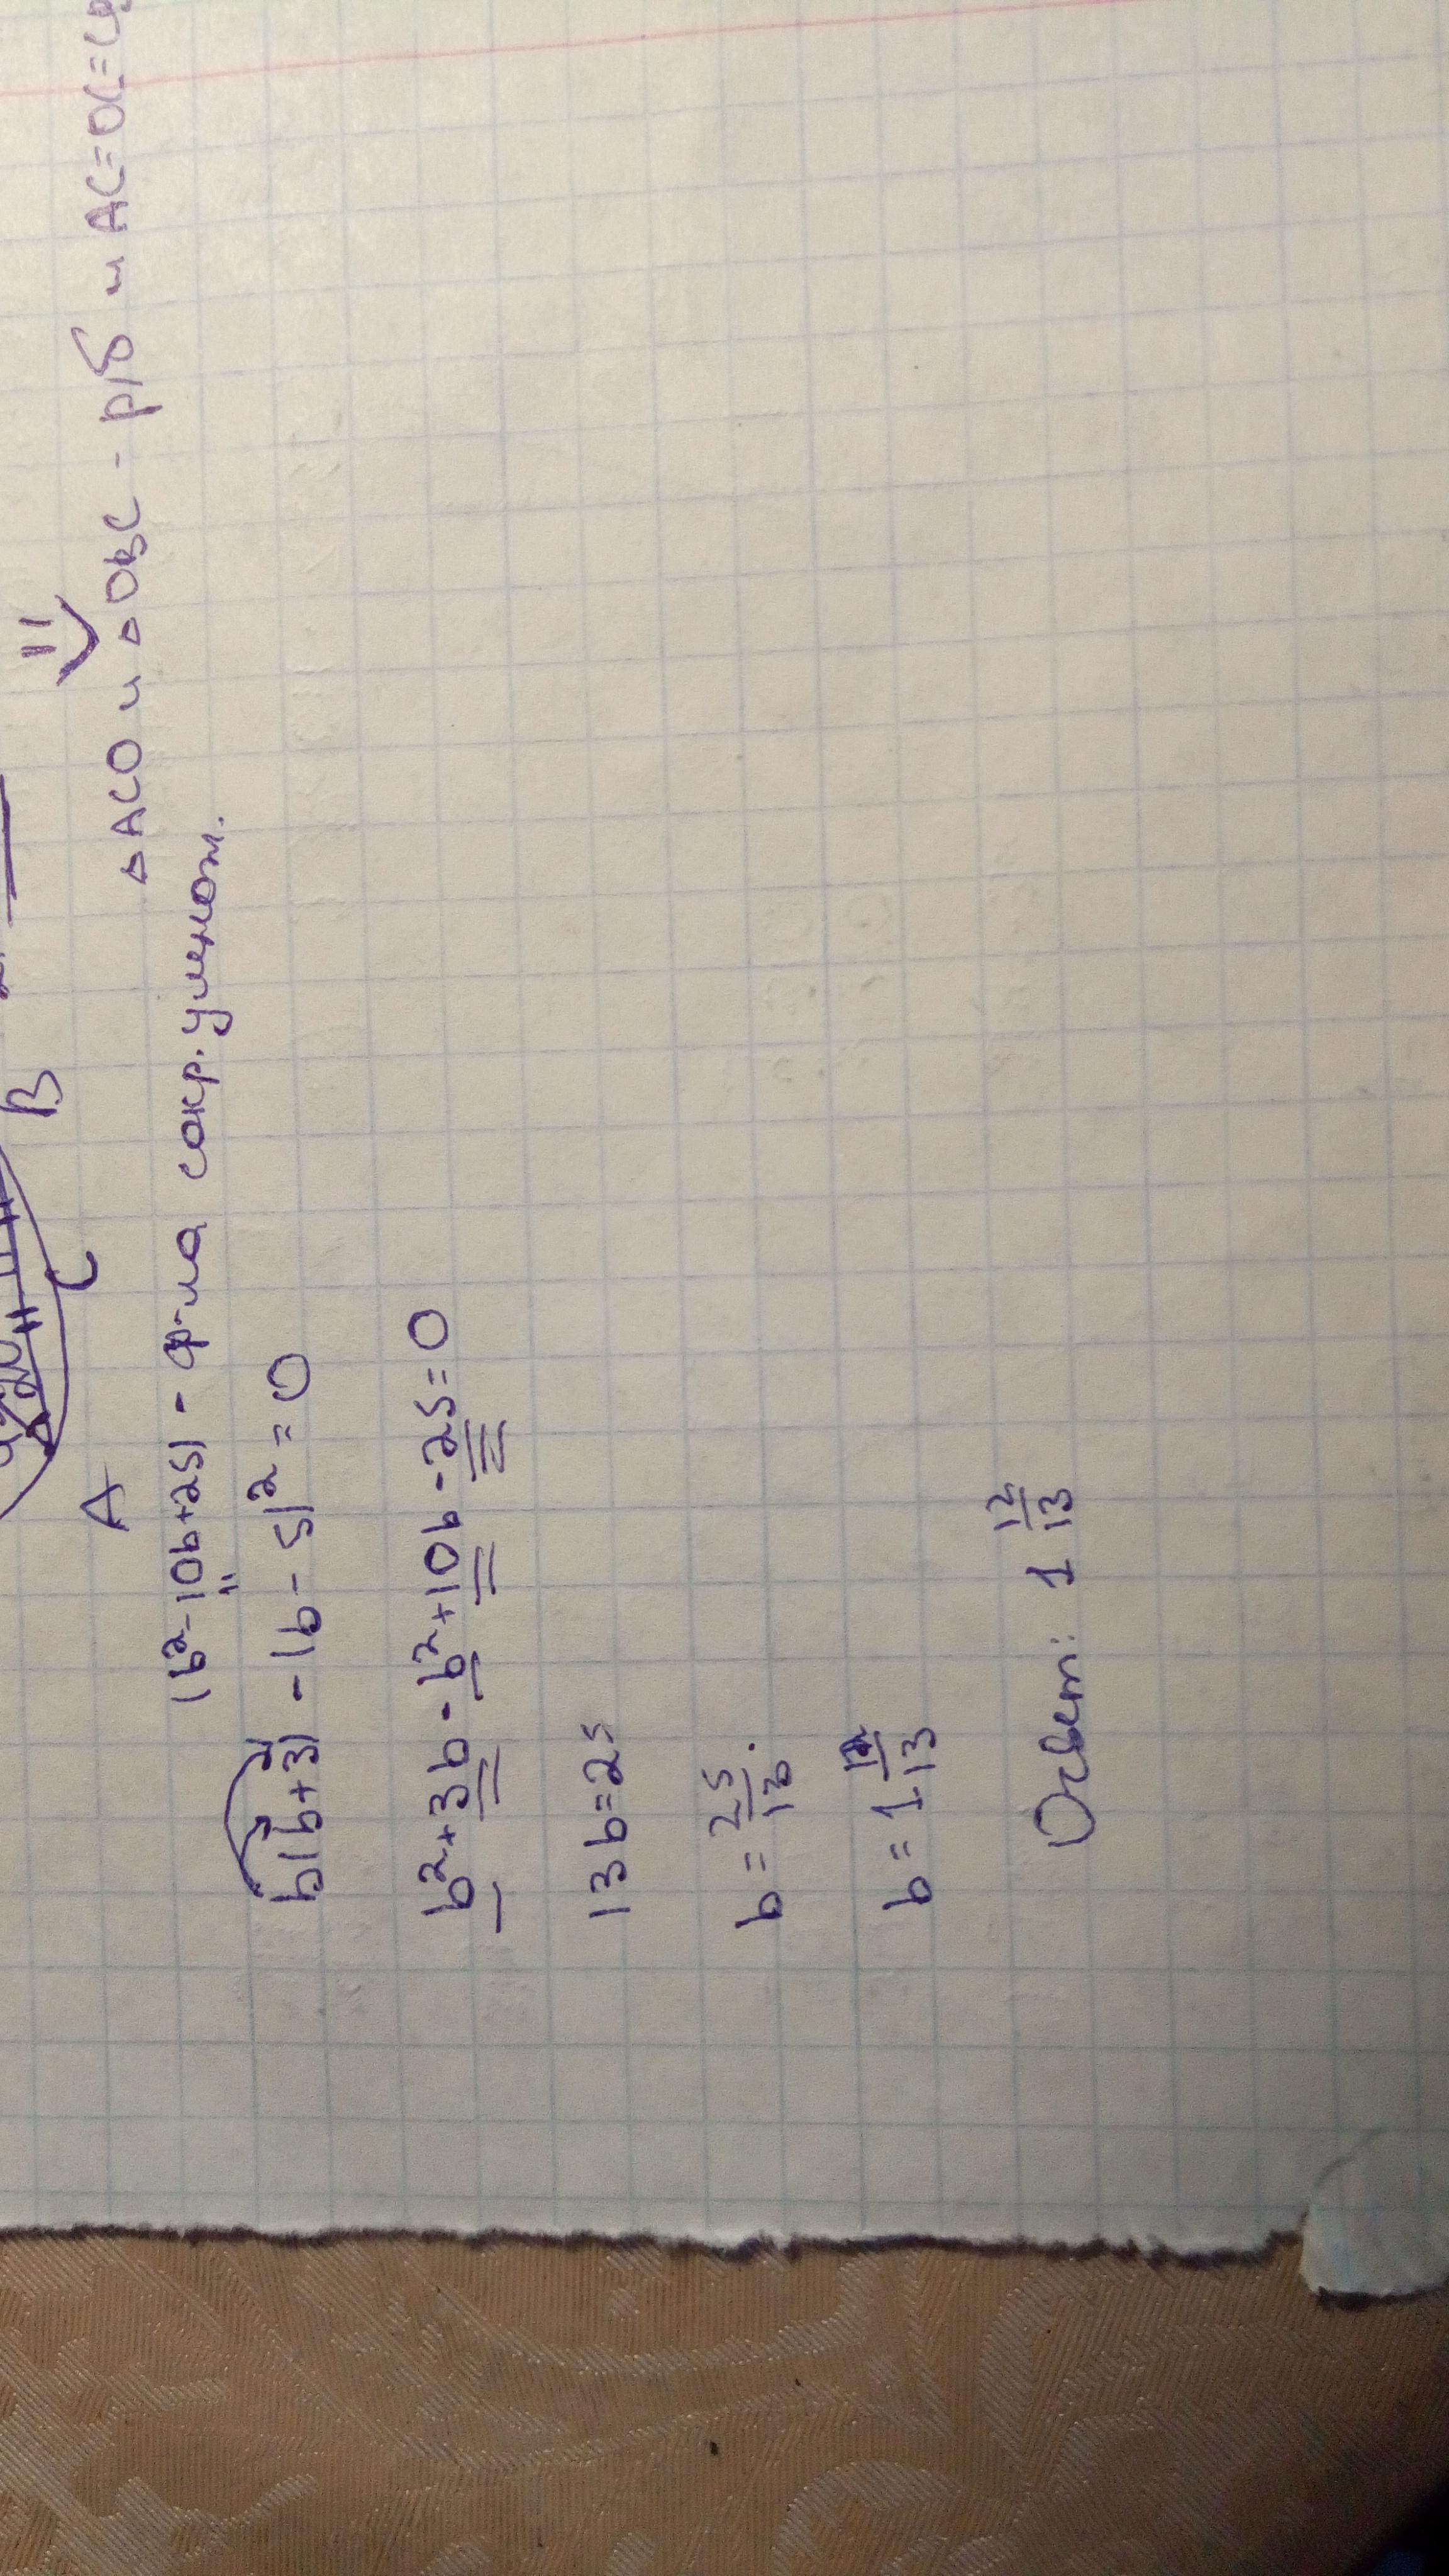 B
C
A
△ACO и △OBC - р/б и AC=OC=
(b²-10b+25) - ф-ла сокр. умнож.
"
b(b+3) - (b-5)² = 0
b²+3b-b²+10b-25=0
13b=25
b = 25/13.
b = 1 12/13
Ответ: 1 12/13